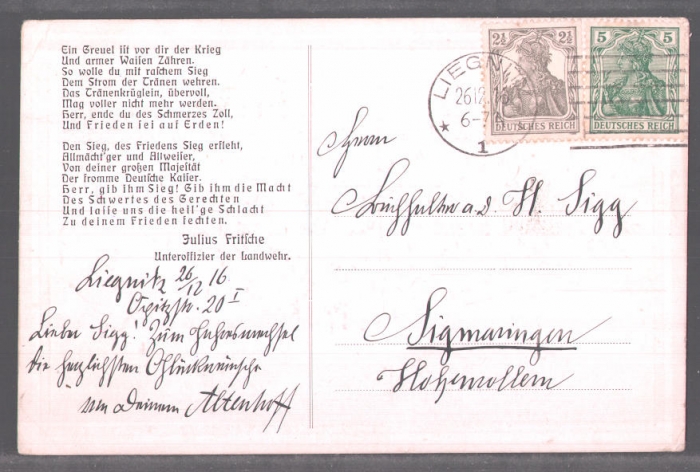 Ein Greuel ist vor dir der Krieg
Und armer Waisen Zähren.
So wolle du mit raschem Sieg
Dem Strom der Tränen wehren.
Das Tränenkrüglein, übervoll,
Mag voller nicht mehr werden.
Herr, ende du des Schmerzes Zoll,
Und Frieden sei auf Erden!
Den Sieg, des Friedens Sieg erfleht,
Allmächt'ger und Allweiser,
Von deiner großen Majestät
Der fromme Deutsche Kaiser.
Herr, gib ihm Sieg! Gib ihm die Macht
Des Schwertes des Gerechten
Und lasse uns die heil'ge Schlacht
Zu deinem Frieden fechten.
Julius Fritsche
Unteroffizier der Landwehr.
Liegnitz 26/12 16
Opitzstr. 20 I
Lieber Sigg! Zum Jahreswechsel
die herzlichsten Glückwünsche
von Deinem Altenhoff
2½ 2½
DEUTSCHES REICH
5 5
DEUTSCHES REICH
LIEGN
26.12.16
6-7
1
Herrn
Buchhalter a.D. H. Sigg
Sigmaringen
Hohenzollern